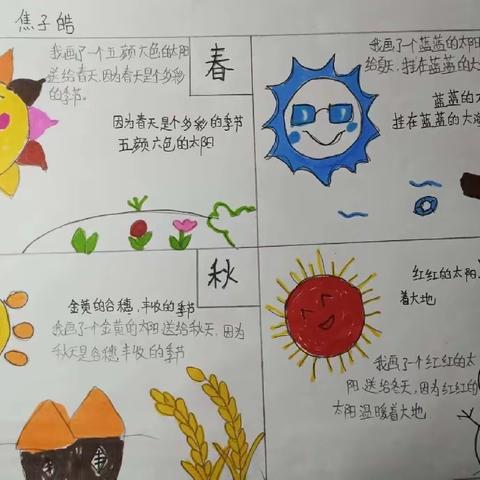 焦子皓
我画了一个五颜六色的太阳
送给春天,因为春天是个多彩
的季节。
春
因为春天是个多彩的季节
五颜六色的太阳
我画了个蓝蓝的太阳
给夏天,挂在蓝蓝的大
蓝蓝的
挂在蓝蓝的大海
秋
金黄的谷穗,丰收的季节
我画了个金黄的太阳送给秋天,因为
秋天是谷穗丰收的季节
丰
丰
红红的太阳
着大地
我画了个红红的太
阳送给冬天,因为红红的
太阳温暖着大地